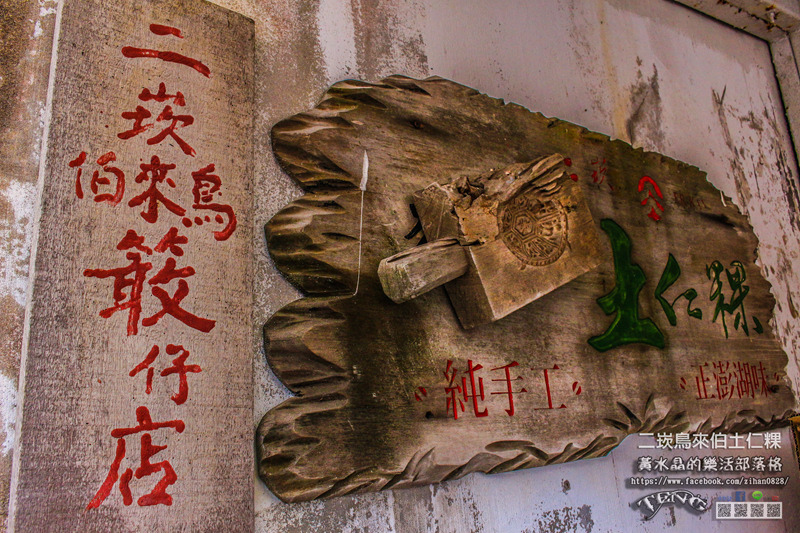 二崁
鳥來伯
簸仔店
二崁
土仁粿
純手工
正澎湖味
二崁鳥來伯土仁粿
黃水晶的樂活部落格
https://www.facebook.com/zihan0828/
TENG